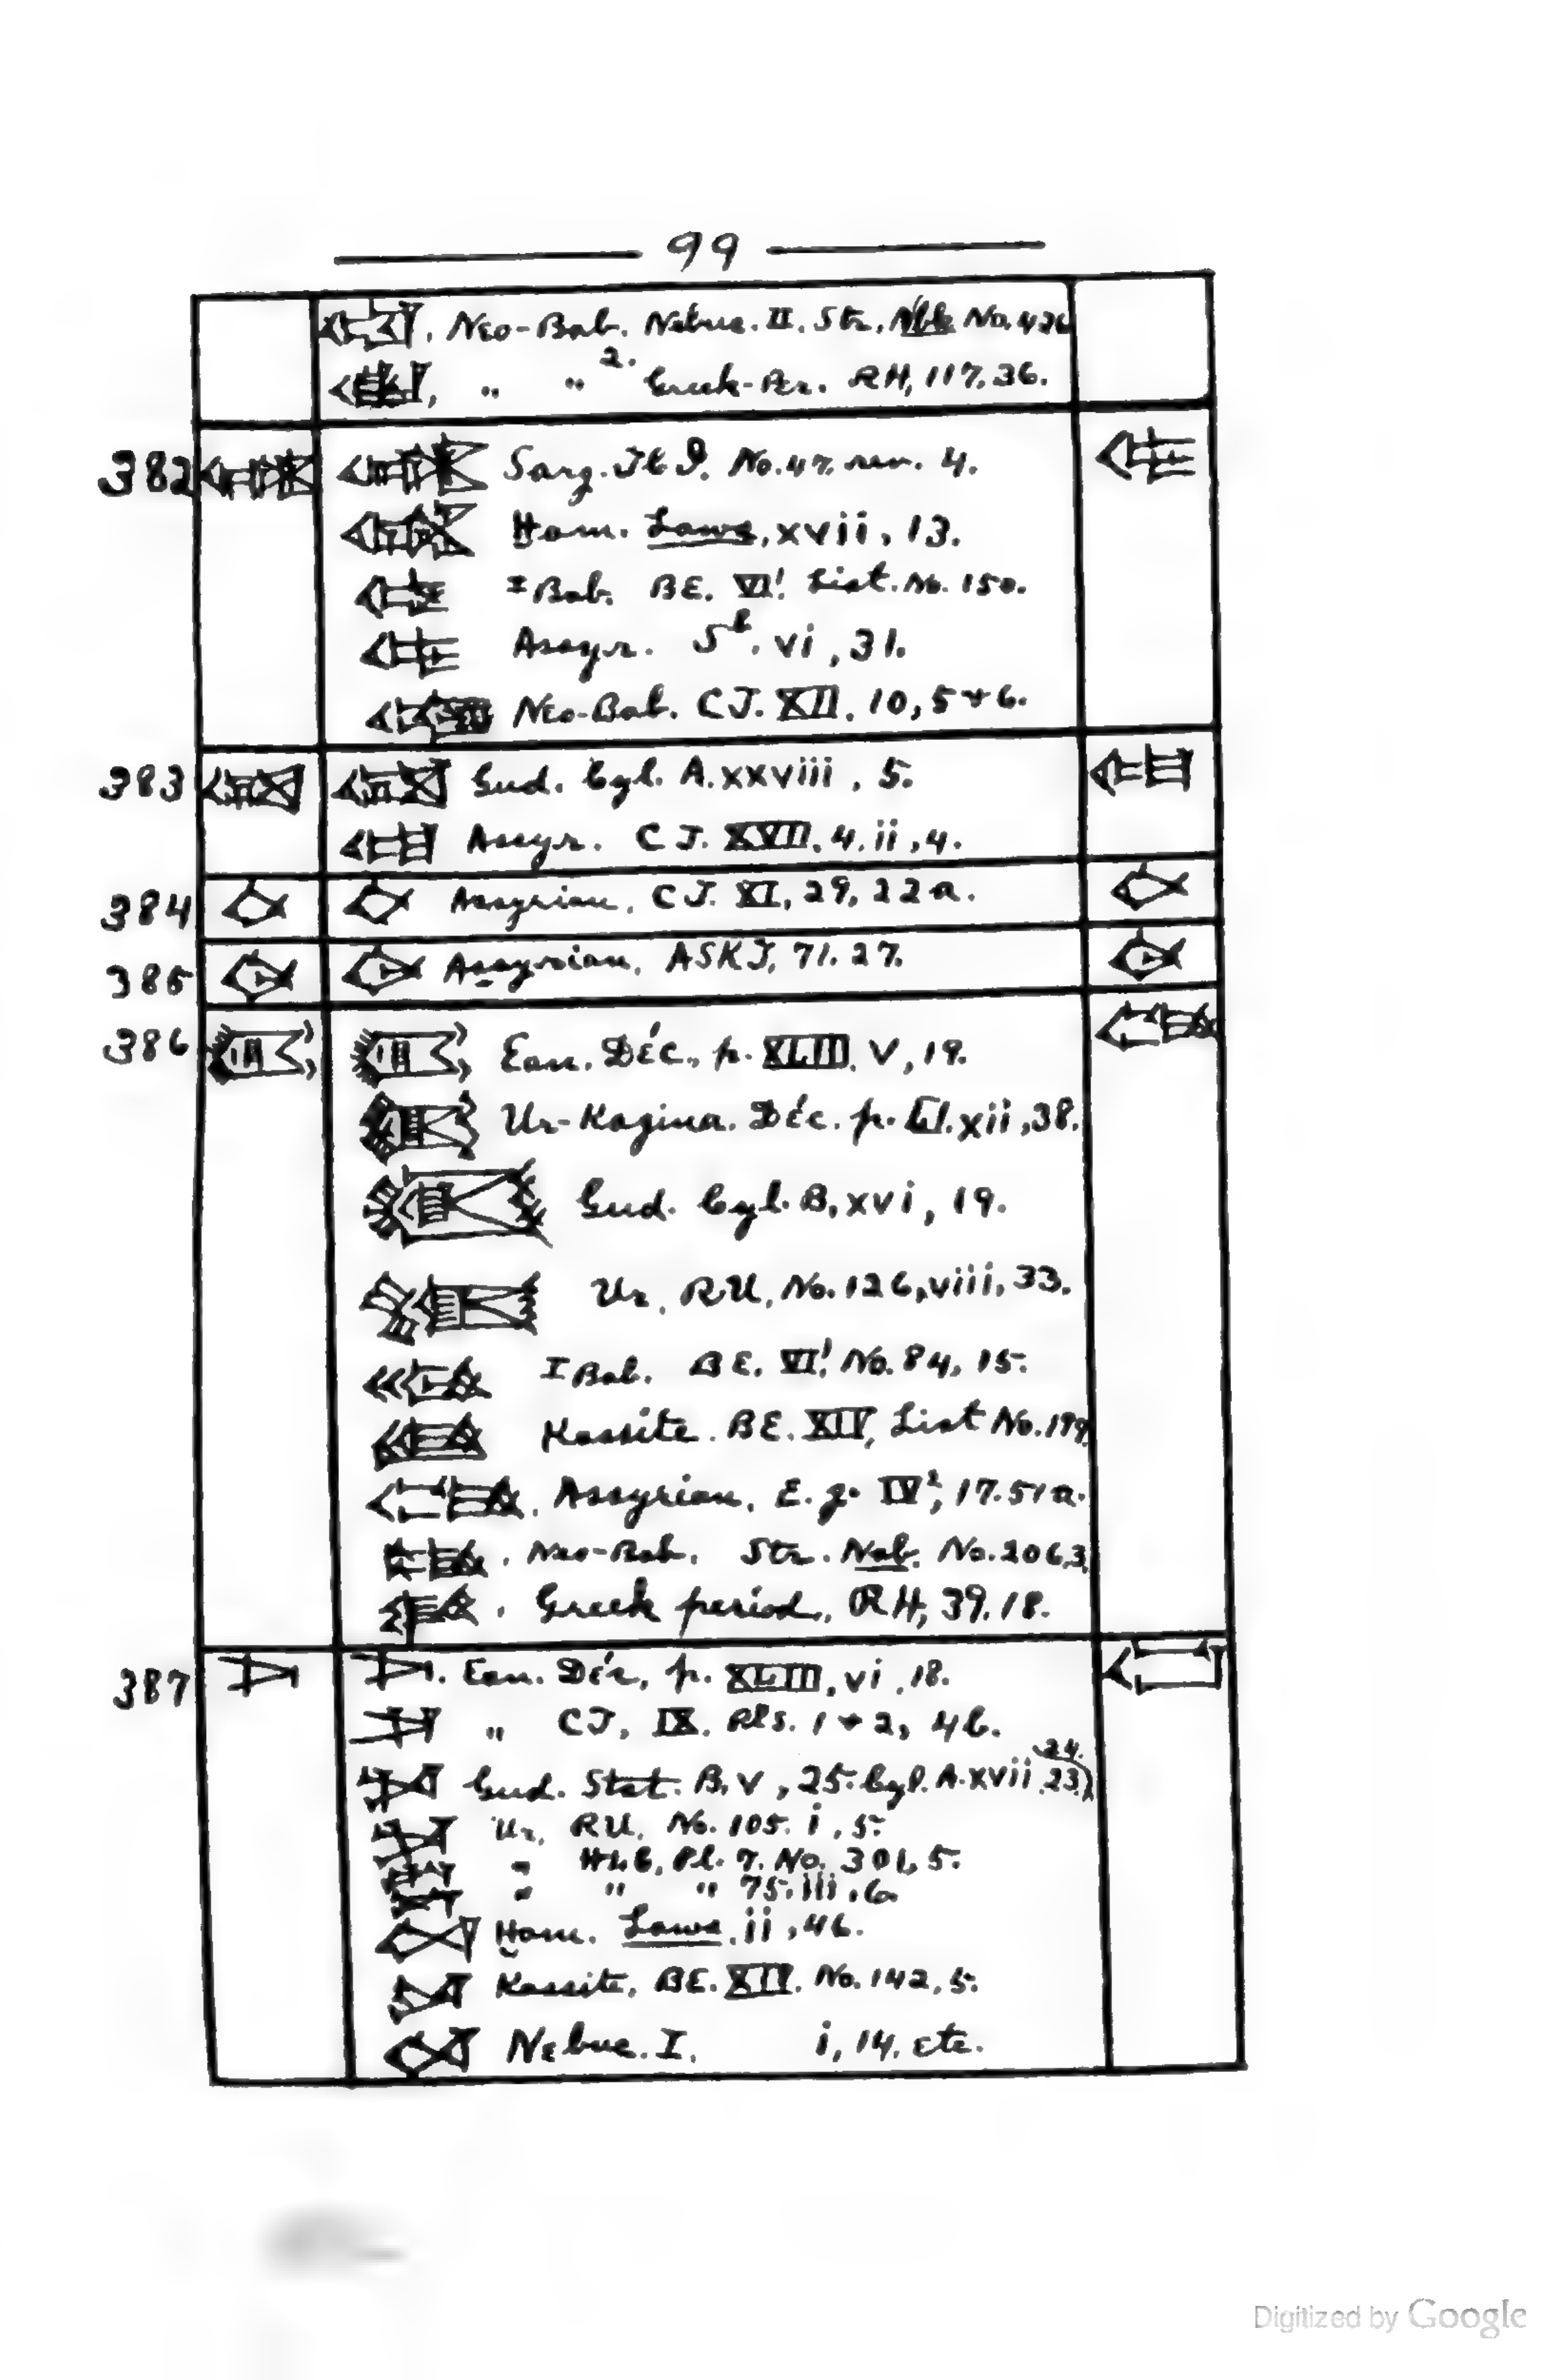 99
Neo-Bab. Nebuc. II. Str. Nbk No. 426
2.
" " Greek-Per. RH, 117. 36.
382 Sarg. No. 47. rev. 4.
Ham. Laws, xvii, 13.
I Bab. BE. VI¹ List. No. 150.
Assyr. Sᵇ. vi, 31.
Neo-Bab. CT. XII, 10, 5 + 6.
383 Gud. Cyl. A. xxviii, 5.
Assyr. CT. XVII, 4. ii, 4.
384 Assyrian, CT. XI, 29, 22a.
385 Assyrian, ASKT, 71. 27.
386 Ean. Déc., p. XLIII. V, 19.
Ur-Kagina. Déc. p. LI. xii, 38.
Gud. Cyl. B, xvi, 19.
Ur, RU, No. 126, viii, 33.
I Bab. BE. VI¹ No. 84, 15.
Kassite. BE. XIV, List No.
Assyrian, E. g. IV², 17. 51a.
Neo-Bab. Str. Nab. No. 206,3.
Greek period, RH, 39. 18.
387 Ean. Déc, p. XLIII, vi, 18.
" CT, IX. Pls. 1 + 2, 4b.
24.
Gud. Stat. B, V, 25. Cyl. A. xvii 23.)
Ur, RU, No. 105. i, 5.
" HLC, Pl. 7. No. 301, 5.
" " " 75. iii, 6.
Ham. Laws, ii, 46.
Kassite, BE. XIV. No. 142, 5.
Nebuc. I. i, 14. etc.
Digitized by Google